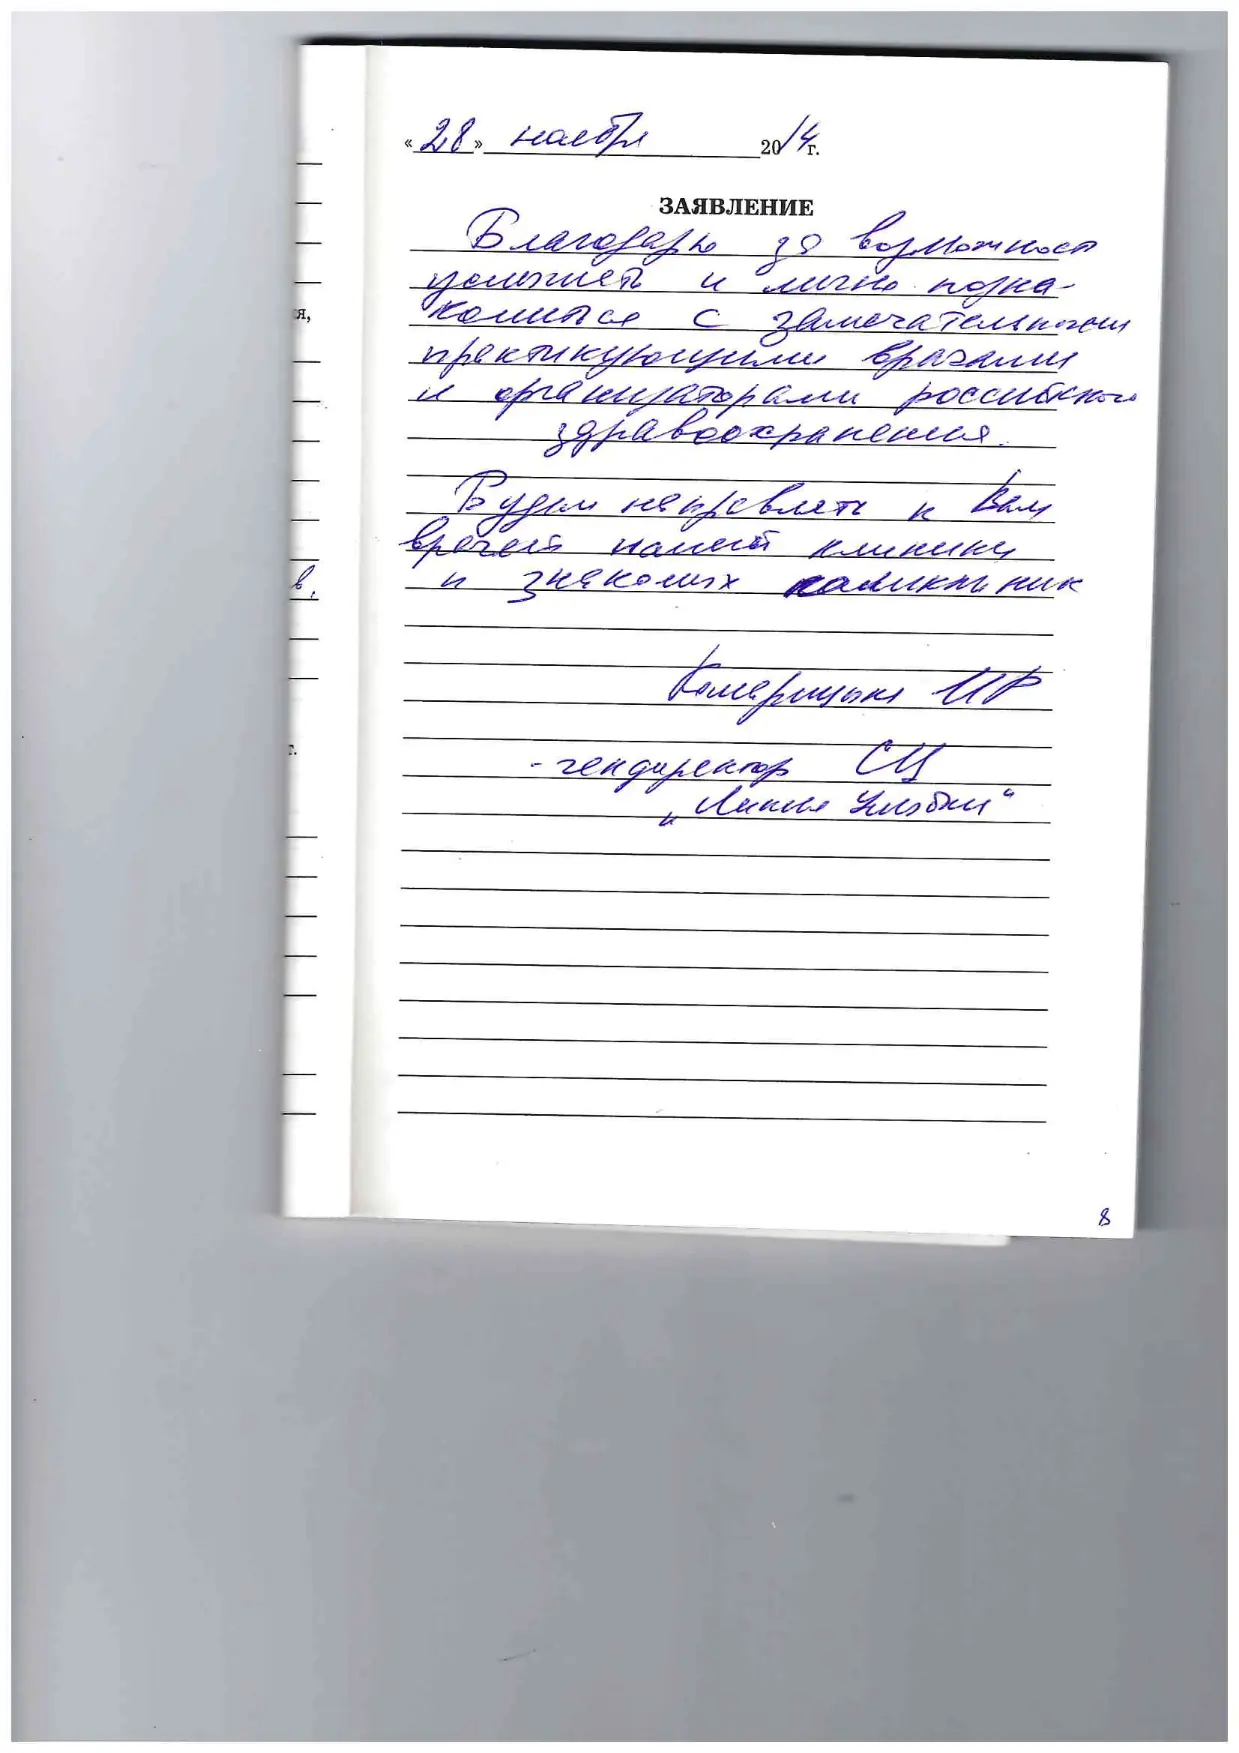 «28» ноября 2014 г.
ЗАЯВЛЕНИЕ
Благодарю за возможность
услышать и лично позна-
комиться с замечательными
практикующими врачами
и организаторами российского
здравоохранения.
Будем направлять к Вам
врачей нашей клиники
и знакомых
Комерицына ИР
- гендиректор СЦ
„Линия Улыбки“
я,
в,
г.
8